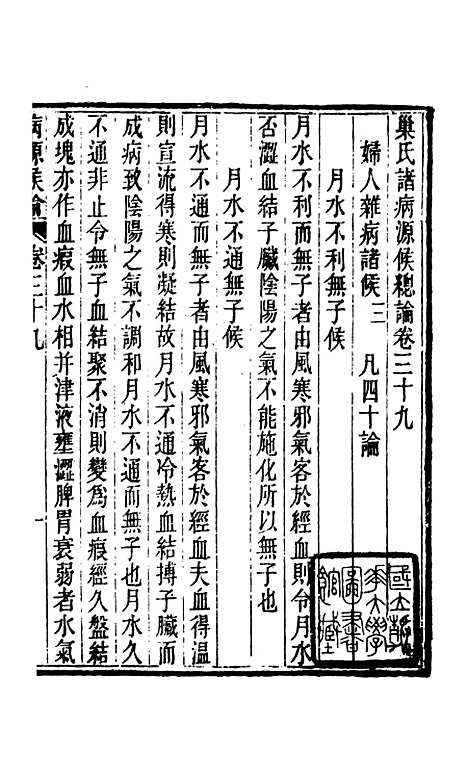 巢氏諸病源候總論卷三十九
婦人雜病諸候三　凡四十論
月水不利無子候
月水不利而無子者由風寒邪氣客於經血則令月水
否澀血結子臟陰陽之氣不能施化所以無子也
月水不通無子候
月水不通而無子者由風寒邪氣客於經血夫血得溫
則宣流得寒則凝結故月水不通冷熱血結搏子臟而
成病致陰陽之氣不調和月水不通而無子也月水久
不通非止令無子血結聚不消則變爲血瘕經久盤結
成塊亦作血瘕血水相并津液壅澀脾胃衰弱者水氣
病源候論　卷三十九　一
國立清華大學圖書館藏